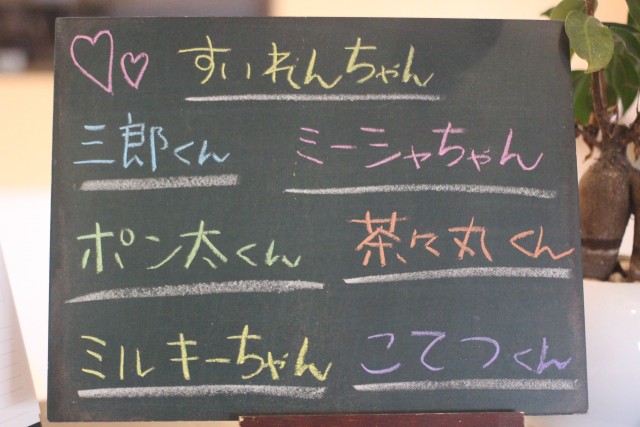 すいれんちゃん
三郎くん
ミーシャちゃん
ポン太くん
茶々丸くん
ミルキーちゃん
こてつくん